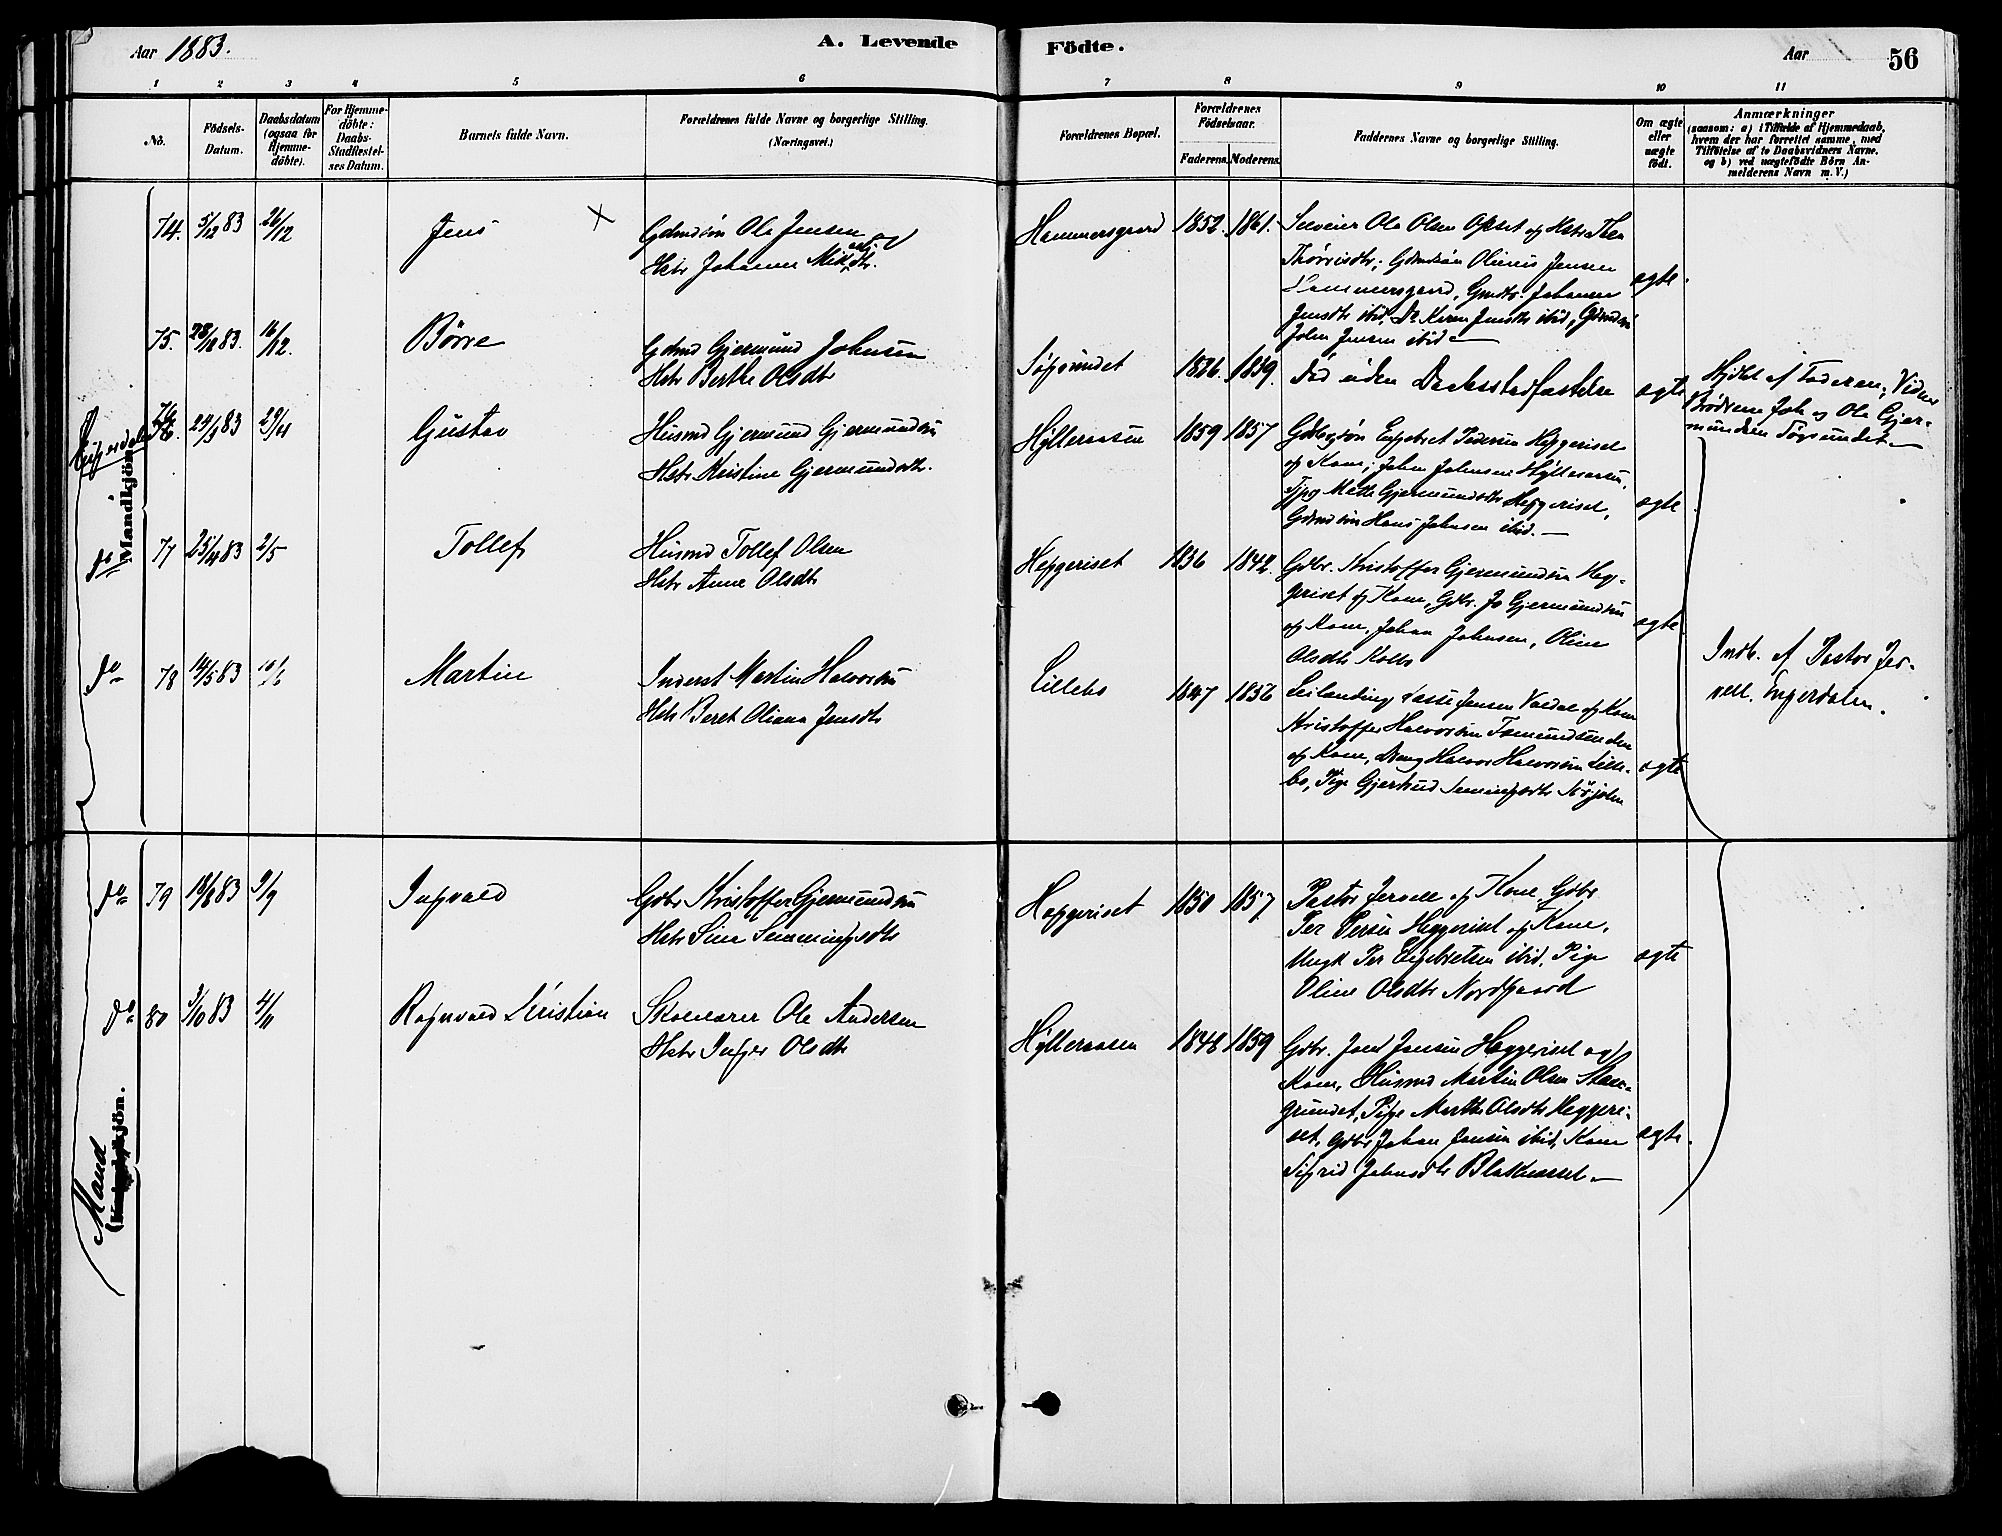 Aar 1883.
A. Levende
Födte.
Aar
56
1 2 3 4 5 6 7 8 9 10 11
No.
Födsels-
Datum.
Daabsdatum
(ogsaa for
Hjemme-
döbte).
For Hjemme-
döbte:
Daabs-
Stadfæstel-
ses Datum.
Barnets fulde Navn.
Forældrenes fulde Navne og borgerlige Stilling.
(Næringsvei.)
Forældrenes Bopæl.
Forældrenes
Födselsaar.
Faderens. Moderens.
Faddernes Navne og borgerlige Stilling.
Om ægte
eller
uægte
født.
Anmærkninger
(saasom: a) i Tilfælde af Hjemmedaab,
hvem der har forrettet samme, med
Tilföielse af to Daabsvidners Navne,
og b) ved uægtefödte Börn An-
melderens Navn m. V.)
Mandkjön.
74. 5/12 83 26/12
Jens
×
Gdmdsön Ole Jensen og
Hstr Johanne Mik dtr.
Hammersgaard 1852. 1861.
Ole Olsen Opset og Hstr Thea
Thörrisdtr; Gdmdsön Olinus Jensen
Hammersgaard, Johanne
Jensdtr ibid, Do Karen Jensdtr ibid, Gdmdsön
John Jensen ibid
ægte.
75. 28/8 83. 16/12.
Börre
Gdmd Gjermund Johnsen
Hstr Berthe Olsdtr
Sögsundet 1836. 1839.
Död uden Daabsstadfæstelse
ægte
Hjdbt af Faderen; Vidner
Brödrene Joh og Ole Gjer-
mundsen Sögsundet
Engerdalen
76. 24/3 83 29/4
Gustav
Husmd Gjermund Gjermundsön
Hstr Kristine Gjermundsdtr.
Hylleraasen 1859 1857
Engebret Pedersen Heggeriset
og Kone; Johan Johnsen Hylleraasen,
Mette Gjermundsdtr Heggeriset,
Gdmdsön Hans Johnsen ibid.
ægte
do 77 25/4 83 2/5
Tollef
Husmd Tollef Olsen
Hstr Anne Olsdtr
Heggeriset 1836 1842.
Gdbr. Kristoffer Gjermundsön Heg-
geriset og Kone, Gdbr. Jo Gjermundsön
og Kone, Johan Johnsen, Oline
Olsdtr Kolbo
ægte
do 78 14/5 83 10/6
Martin
Inderst Martin Halvorsön
Hstr Beret Oliana Jensdtr
Lillebo 1847 1856
Leilending Lasse Jensen Valdal og Kone
Kristoffer Halvorsön Fæmundsenden
og Kone, Dreng Halvor Halvorsön Lille-
bo, Pige Gjertrud Semmingsdtr Sörjolen
ægte
Indb. af Pastor Jer-
vell. Engerdalen.
do 79 18/8 83 9/9
Ingvald
Gdbr Kristoffer Gjermundsön
Hstr Sine Semmingsdtr
Heggeriset 1850 1857
Pastor Jervell og Kone, Gdbr
Per Persen Heggeriset og Kone,
Ungk Per Engebretsen ibid, Pige
Oline Olsdtr Nordgaard
ægte
do 80 3/10 83 4/11
Ragnvald Kristian
Skolelærer Ole Andersen
Hstr Inger Olsdtr
Hylleraasen 1848 1859
Gdbr. Jensen Heggeriset og
Kone, Husmd Martin Olsen Stan-
grundet, Pige Marthe Olsdtr Heggeri-
set, Gdbr Johan Jensen ibid, Kone
Sigrid Johnsdtr Blakkaasset
ægte.
Mand
kjön.